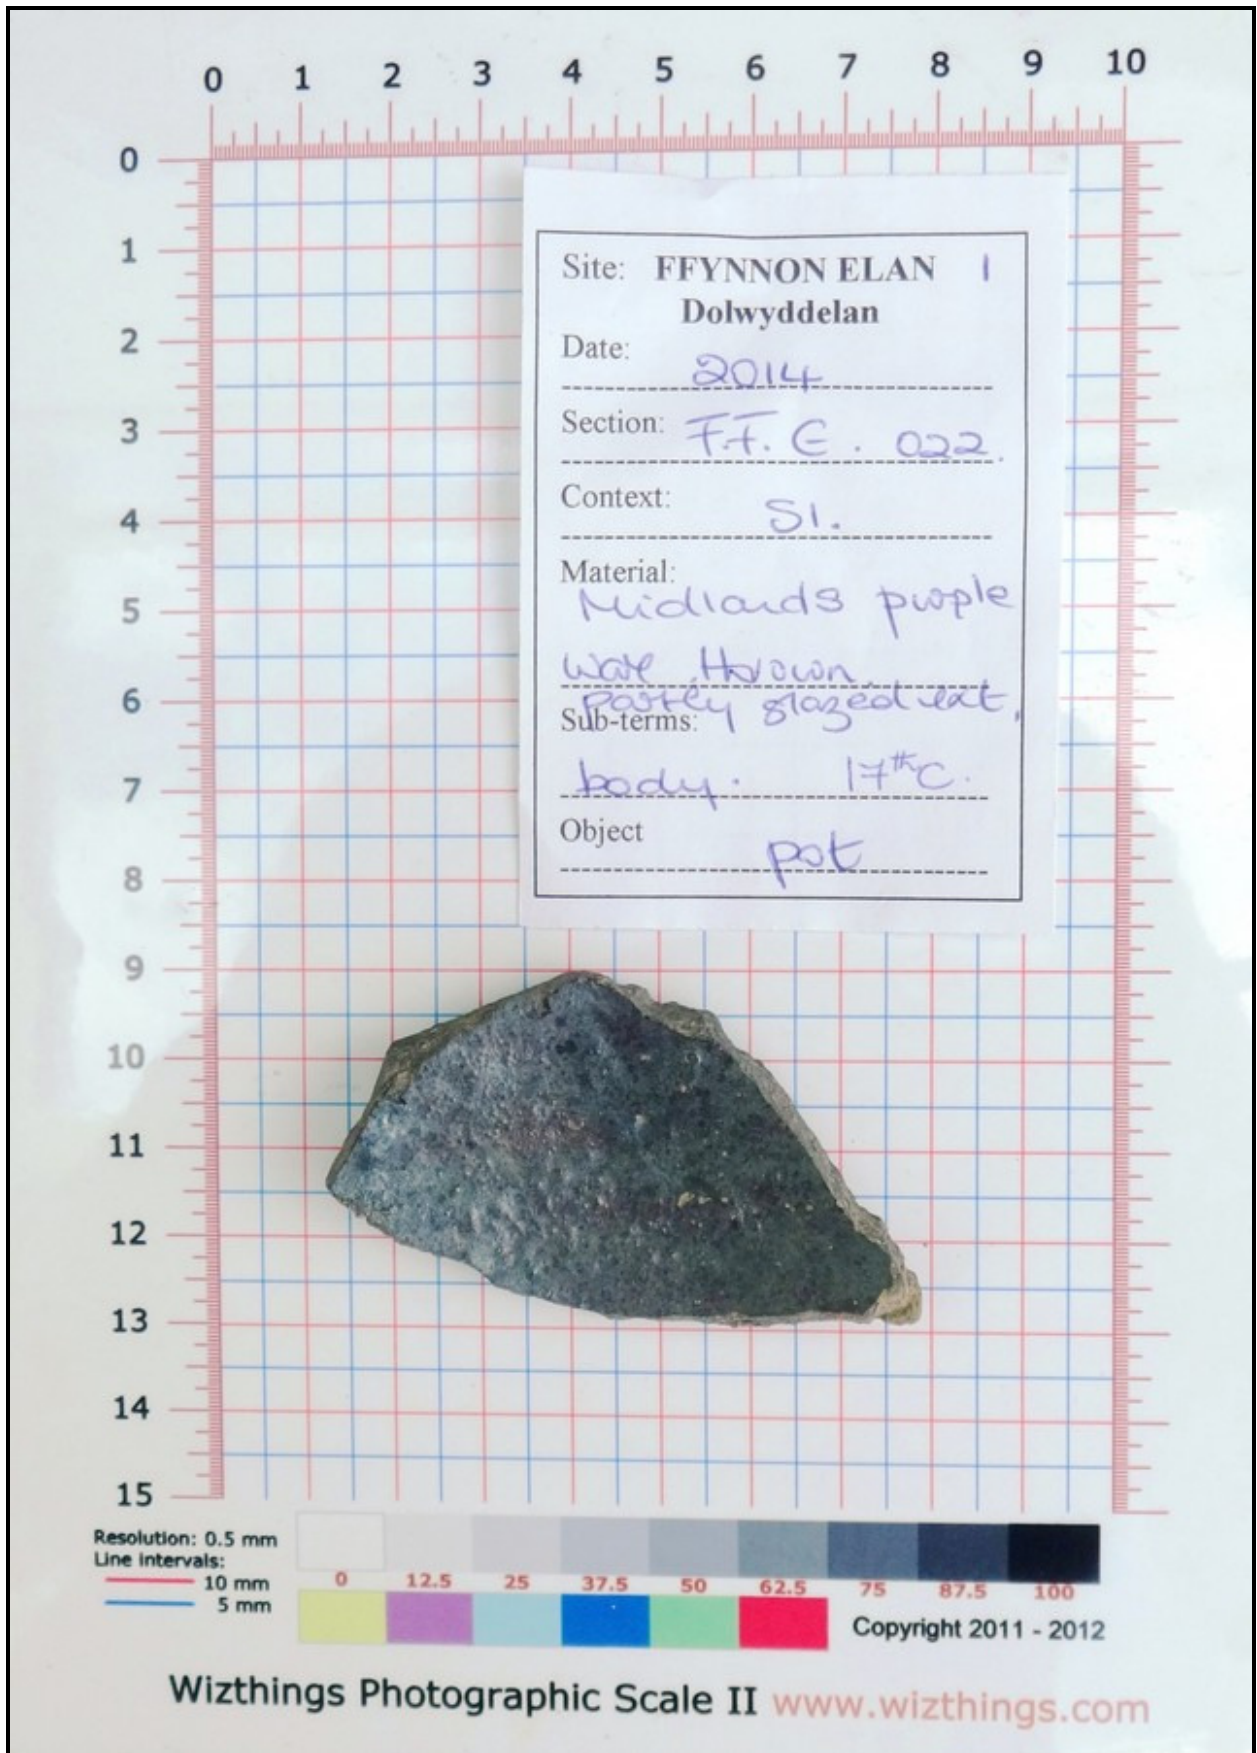 0 1 2 3 4 5 6 7 8 9 10
0
1
2
3
4
5
6
7
8
9
10
11
12
13
14
15
Site: FFYNNON ELAN 1
Dolwyddelan
Date: 2014
Section: F.F. E. 022.
Context: S1.
Material:
Midlands purple
ware. Thrown.
partly glazed ext,
Sub-terms:
body. 17thC.
Object pot
Resolution: 0.5 mm
Line intervals:
10 mm
5 mm
0 12.5 25 37.5 50 62.5 75 87.5 100
Copyright 2011 - 2012
Wizthings Photographic Scale II www.wizthings.com